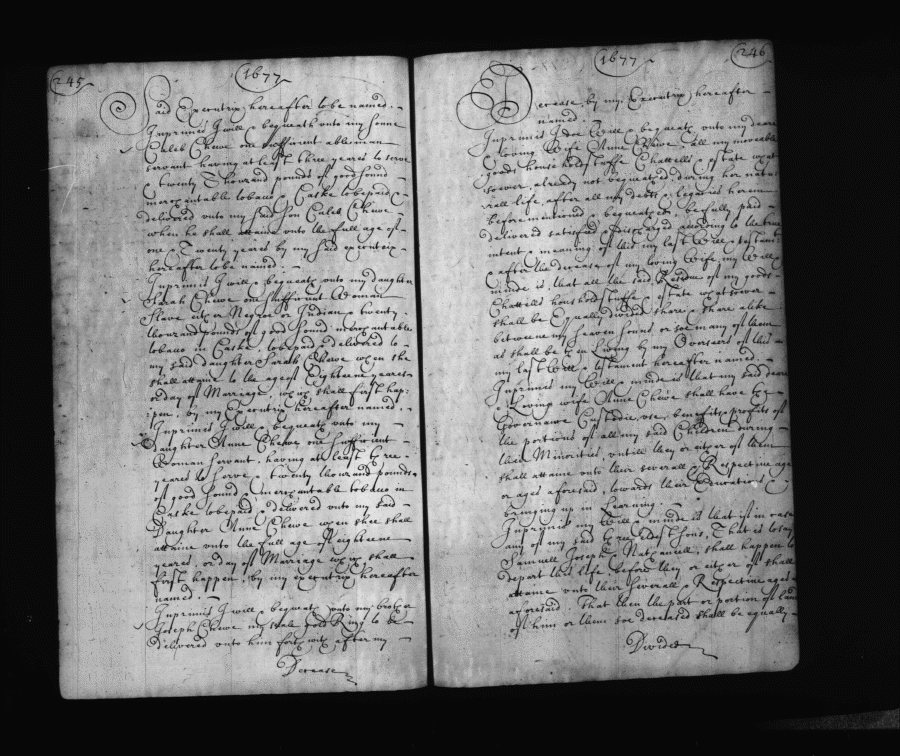 245
1677
Said Executrix hereafter to be named. -
Imprimis I will & bequeath unto my Sonne
Caleb Chewe one sufficient able man
servant having at least three yeares to serve
& twenty Thousand pounds of good sound
merchantable tobaco & Caske to be paid &
delivered unto my said Son Caleb Chewe -
when he shall attaine unto the full age of
one & Twenty yeares by my said executrix -
hereafter to be named. -
Imprimis I will & bequeath unto my daughter
Sarah Chewe one sufficient Woman
Slave either Negroe or Indian & twenty
thousand pounds of good sound merchantable
tobaco in Caske to be paid & delivered to -
my said daughter Sarah Chewe when she
shall attaine to the age of Eighteene yeares
or day of Marriage, wch shall first hap=
pen, by my Executrix hereafter named. -
Imprimis I will & bequeath unto my -
daughter Anne Chewe one sufficient -
Woman servant, having at least three -
yeares to serve & twenty thousand pounds
of good sound & merchantable tobaco in
Caske to be paid & delivered unto my said -
Daughter Anne Chewe when shee shall
attaine unto the full age of Eighteene
yeares, or day of Marriage wch shall
first happen, by my executrix hereafter
named -
Imprimis I will & bequeath unto my brother
Joseph Chewe my seale gold Ring to be
delivered unto him forthwith, after my -
Decease
1677
246
Decease, by my Executrix hereafter -
named. -
Imprimis I doe Will & bequeath unto my deare
& loving Wife Anne Chewe all my moveable
goods household stuffe Chattells & estate what
soever, already not bequeathed during her natu
rall life, after all my debts & legacies herein
before mentioned & bequeathed, be fully paid -
delivered satisfied & discharged according to the true
intent & meaning of this my last Will & testamt
& after the decease of my loving Wife, my Will &
minde is, that all the said Residue of my goods
Chattells household stuffe & estate whatsoever -
shall be Equally divided share & share alike
betweene my seaven sonnes or soe many of them
as shall be then living by my Overseers of this -
my last Will & testament hereafter named. -
Imprimis my Will & minde is that my said deare
& Loving wife Anne Chewe shall have the -
Governance Custodie, use, benefits & profits of
the portions of all my said Children during -
their Minorities, untill they or either of them
shall attaine unto their severall & Respective age
or ages aforesaid, towards their Education &
bringing up in Learning -
Imprimis my Will & minde is that if in case
any of my said three eldest sons, That is to say
Samuell Joseph & Nathaniell, shall happen to
depart this life before they or either of shall
attaine unto their Severall & Respective ages
aforesaid. That then the part or portion of land
of him or them soe deceased shall be equally -
Divided